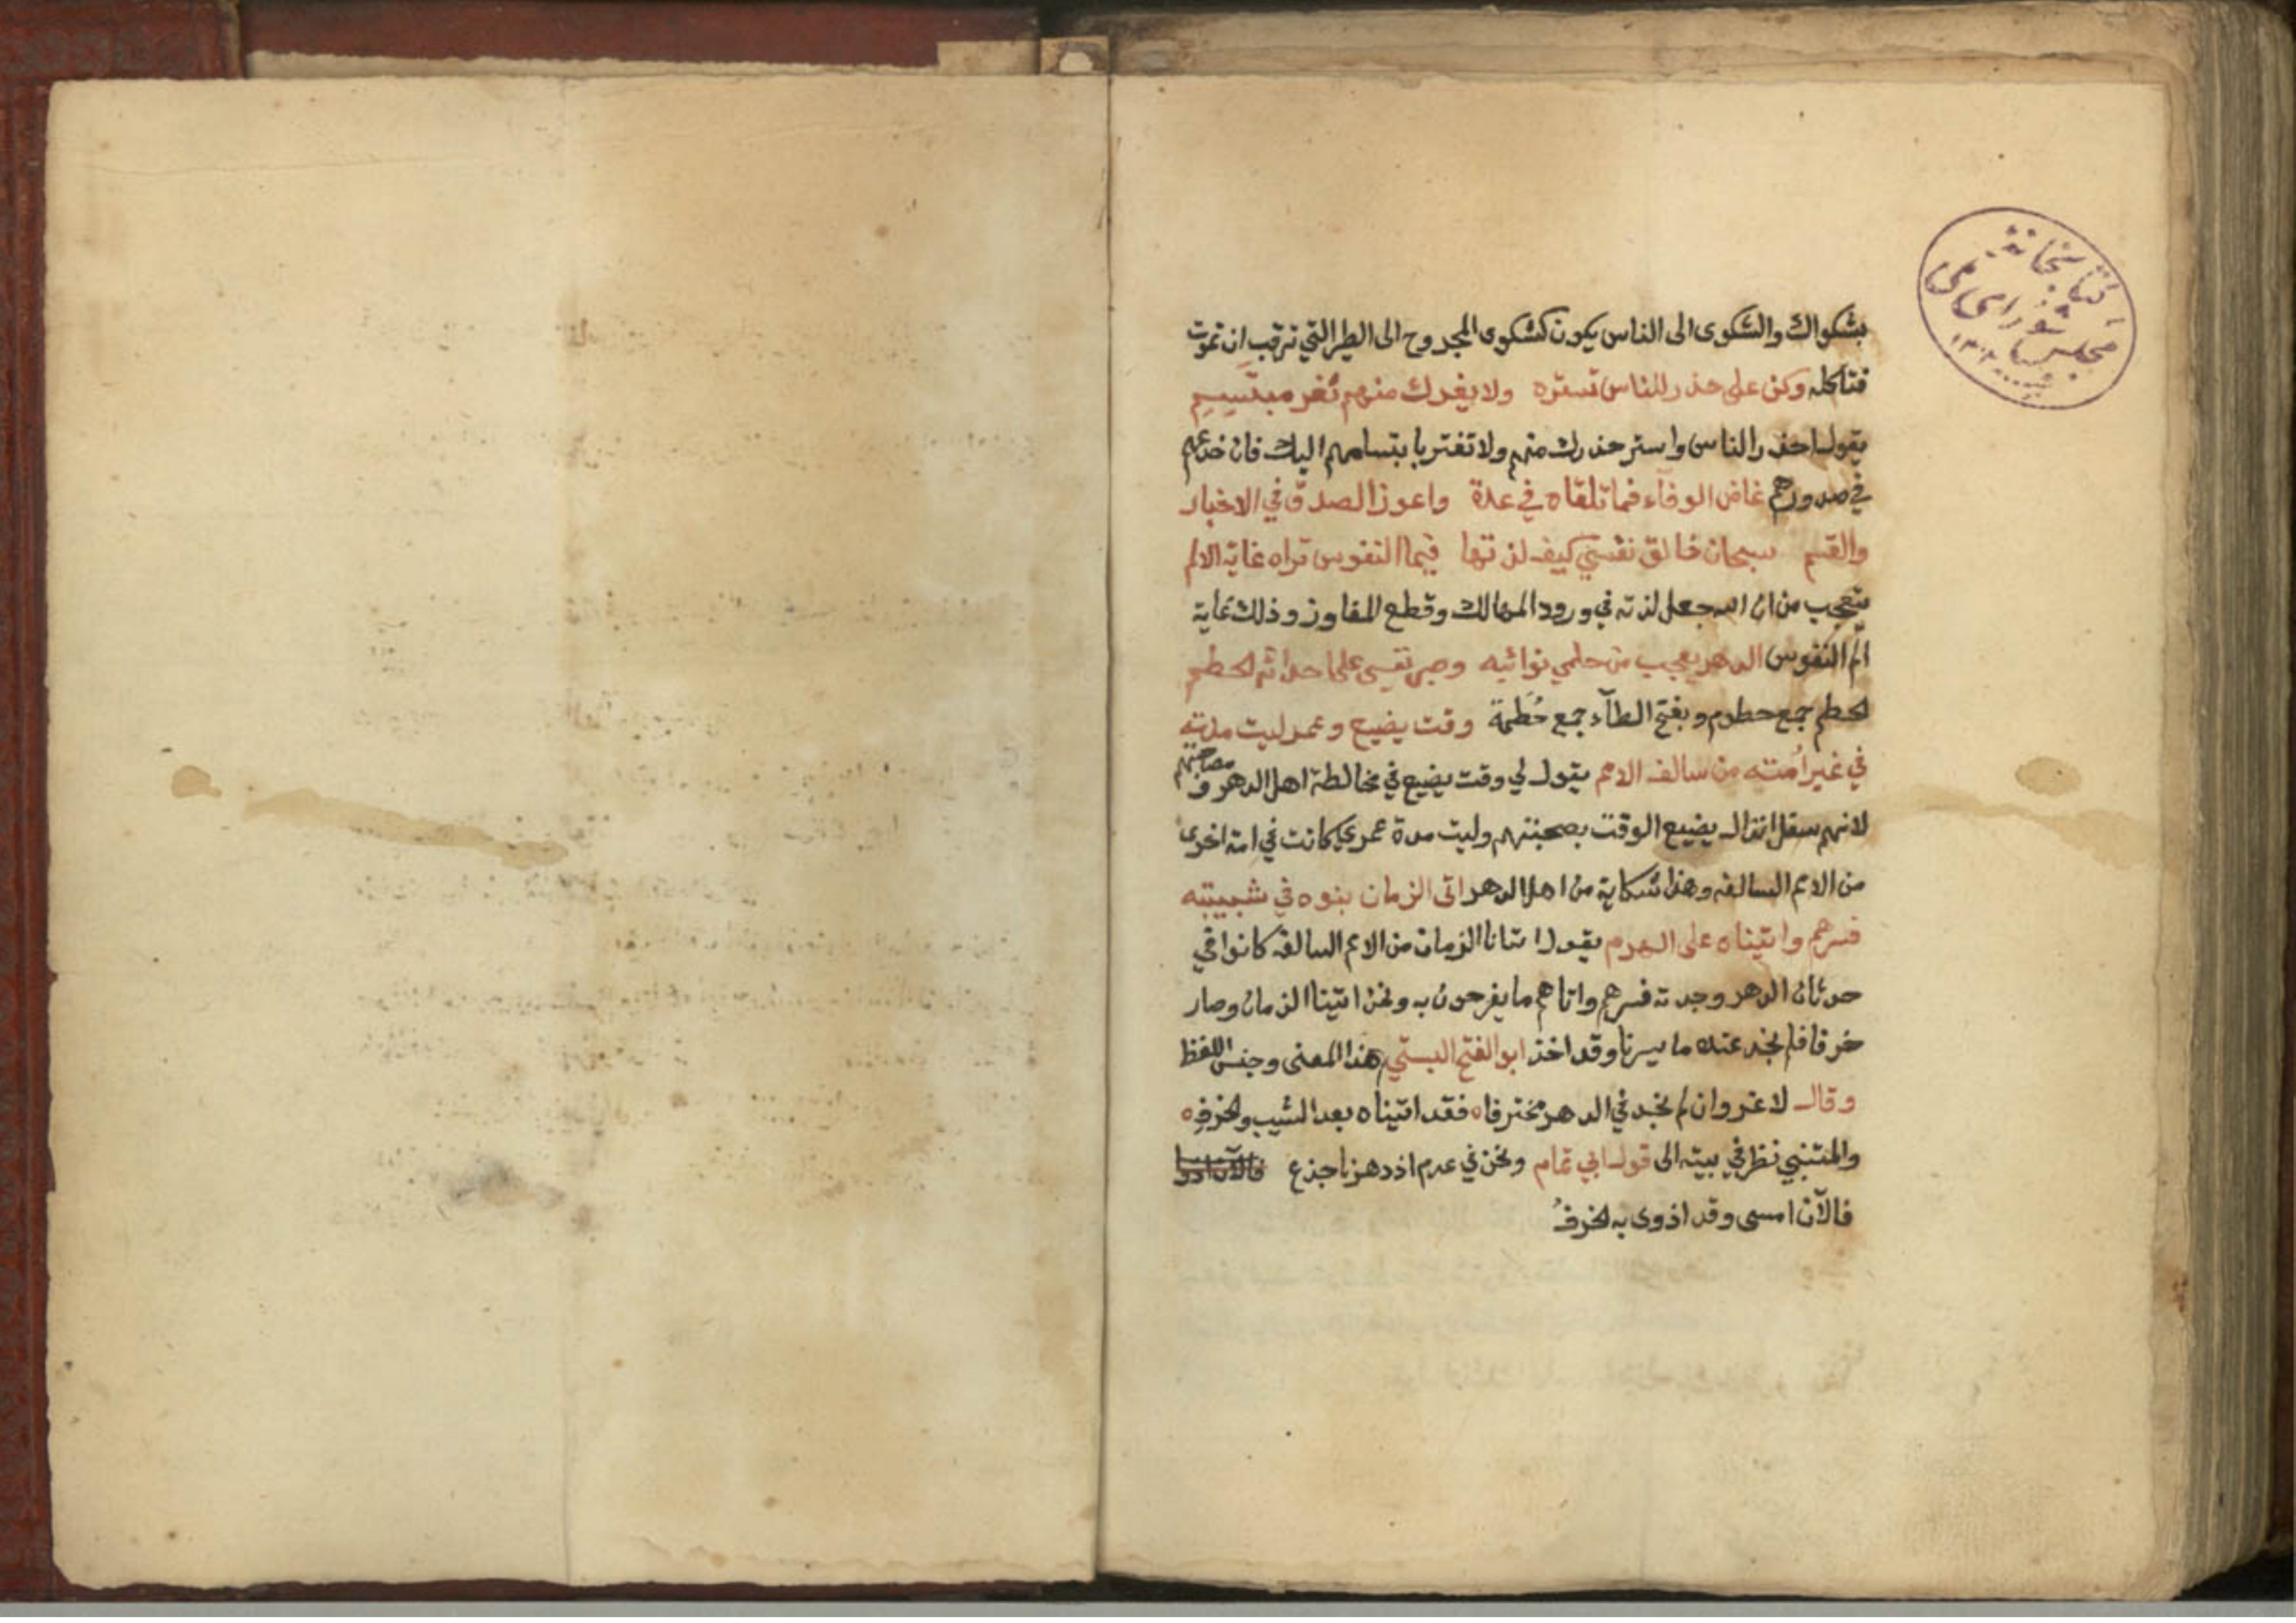 بشكواك والشكوى الى الناس يكون كشكوى المجروح الى الطير التي ترقب ان تموت
فتاكله وكن على حذر للناس تستره ولا يغرك منهم ثغر مبتسم
يقول احذر الناس واستر حذرك منهم ولا تغتر بابتسامهم اليك فان خدعهم
في صدورهم غاض الوفاء فما تلقاه في عدة واعوز الصدق في الاخبار
والقسم سبحان خالق نفسي كيف لذتها فيما النفوس تراه غاية الالم
يتعجب من ان الله جعل لذته في ورود المهالك وقطع المفاوز وذلك غاية
الم النفوس الدهر يعجب من حملي نوائبه وصبر نفسي على احداثه الحطم
الحطم جمع حطوم وبفتح الطآء جمع حُطَمة وقت يضيع وعمر ليت مدته
في غير امته من سالف الامم يقول لي وقت يضيع في مخالطة اهل الدهر و مصاحبتهم
لانهم سفل انذال يضيع الوقت بصحبتهم وليت مدة عمري كانت في امة اخرى
من الامم السالفه وهذا شكاية من اهل الدهر اتى الزمان بنوه في شبيبته
فسرهم واتيناه على الهرم يقول اتانا الزمان من الامم السالفه كانوا في
حدثان الدهر وجدته فسرهم واتاهم ما يفرحون به ونحن اتينا الزمان وصار
خرفا فلم نجد عنده ما يسرنا وقد اخذ ابو الفتح البستي هذا المعنى وجنس اللفظ
وقال لا غرو ان لم نجد في الدهر مخترفاه فقد اتيناه بعد الشيب والخرفِ ه
والمتنبي نظر في بيته الى قول ابي تمام ونحن في عدم اذ دهرنا جذع
فالآن امسى وقد اذوى به الخرفُ
كتابخانه
مجلس شوراى ملى